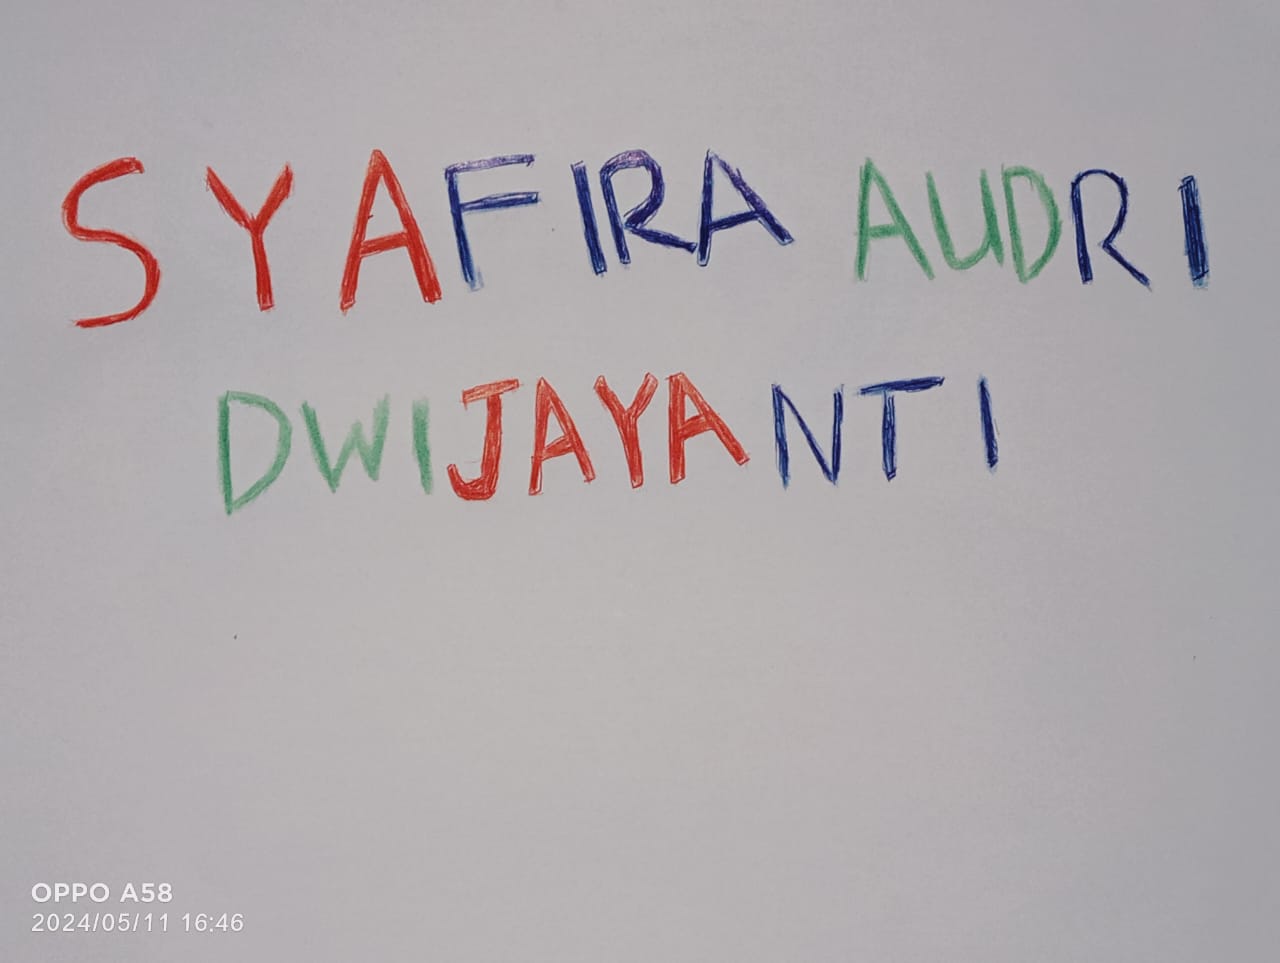 SYAFIRA AUDRI
DWIJAYANTI
OPPO A58
2024/05/11 16:46